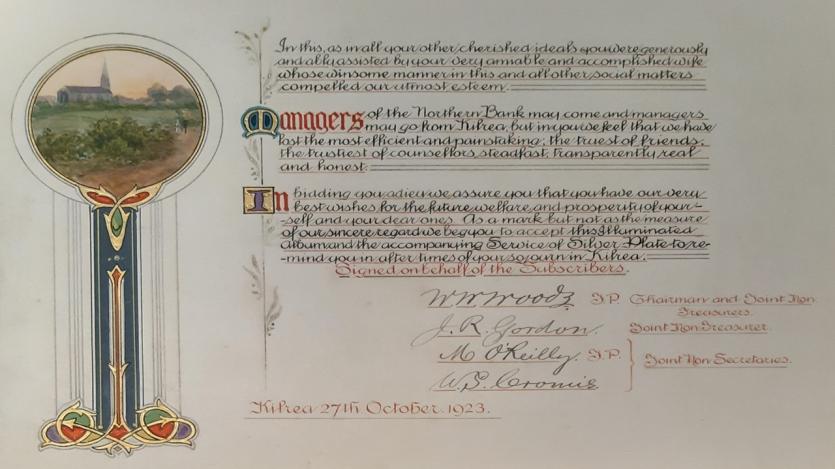 In this, as in all your other cherished ideals you were generously
and ably assisted by your very amiable and accomplished wife
whose winsome manner in this and all other social matters
compelled our utmost esteem.
Managers of the Northern Bank may come and managers
may go from Kilrea, but in you we feel that we have
lost the most efficient and painstaking; the truest of friends;
the trustiest of counsellors, steadfast, transparently real
and honest.
In bidding you adieu we assure you that you have our very
best wishes for the future welfare and prosperity of your-
-self and your dear ones. As a mark but not as the measure
of our sincere regard we beg you to accept this Illuminated
Album and the accompanying Service of Silver Plate to re-
mind you in after times of your sojourn in Kilrea.
Signed on behalf of the Subscribers.
W. W. Woods J.P. Chairman and Joint Hon.
Treasurers.
J. R. Gordon. Joint Hon. Treasurer.
M O'Reilly. J.P.
Joint Hon. Secretaries.
W. S. Cromie
Kilrea 27th October. 1923.